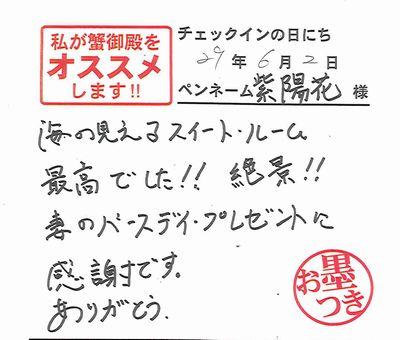 私が蟹御殿を
オススメ
します!!
チェックインの日にち
29年6月2日
ペンネーム紫陽花様
海の見えるスイート・ルーム
最高でした!! 絶景!!
妻のバースデイ・プレゼントに
感謝です。
ありがとう。
お墨つき